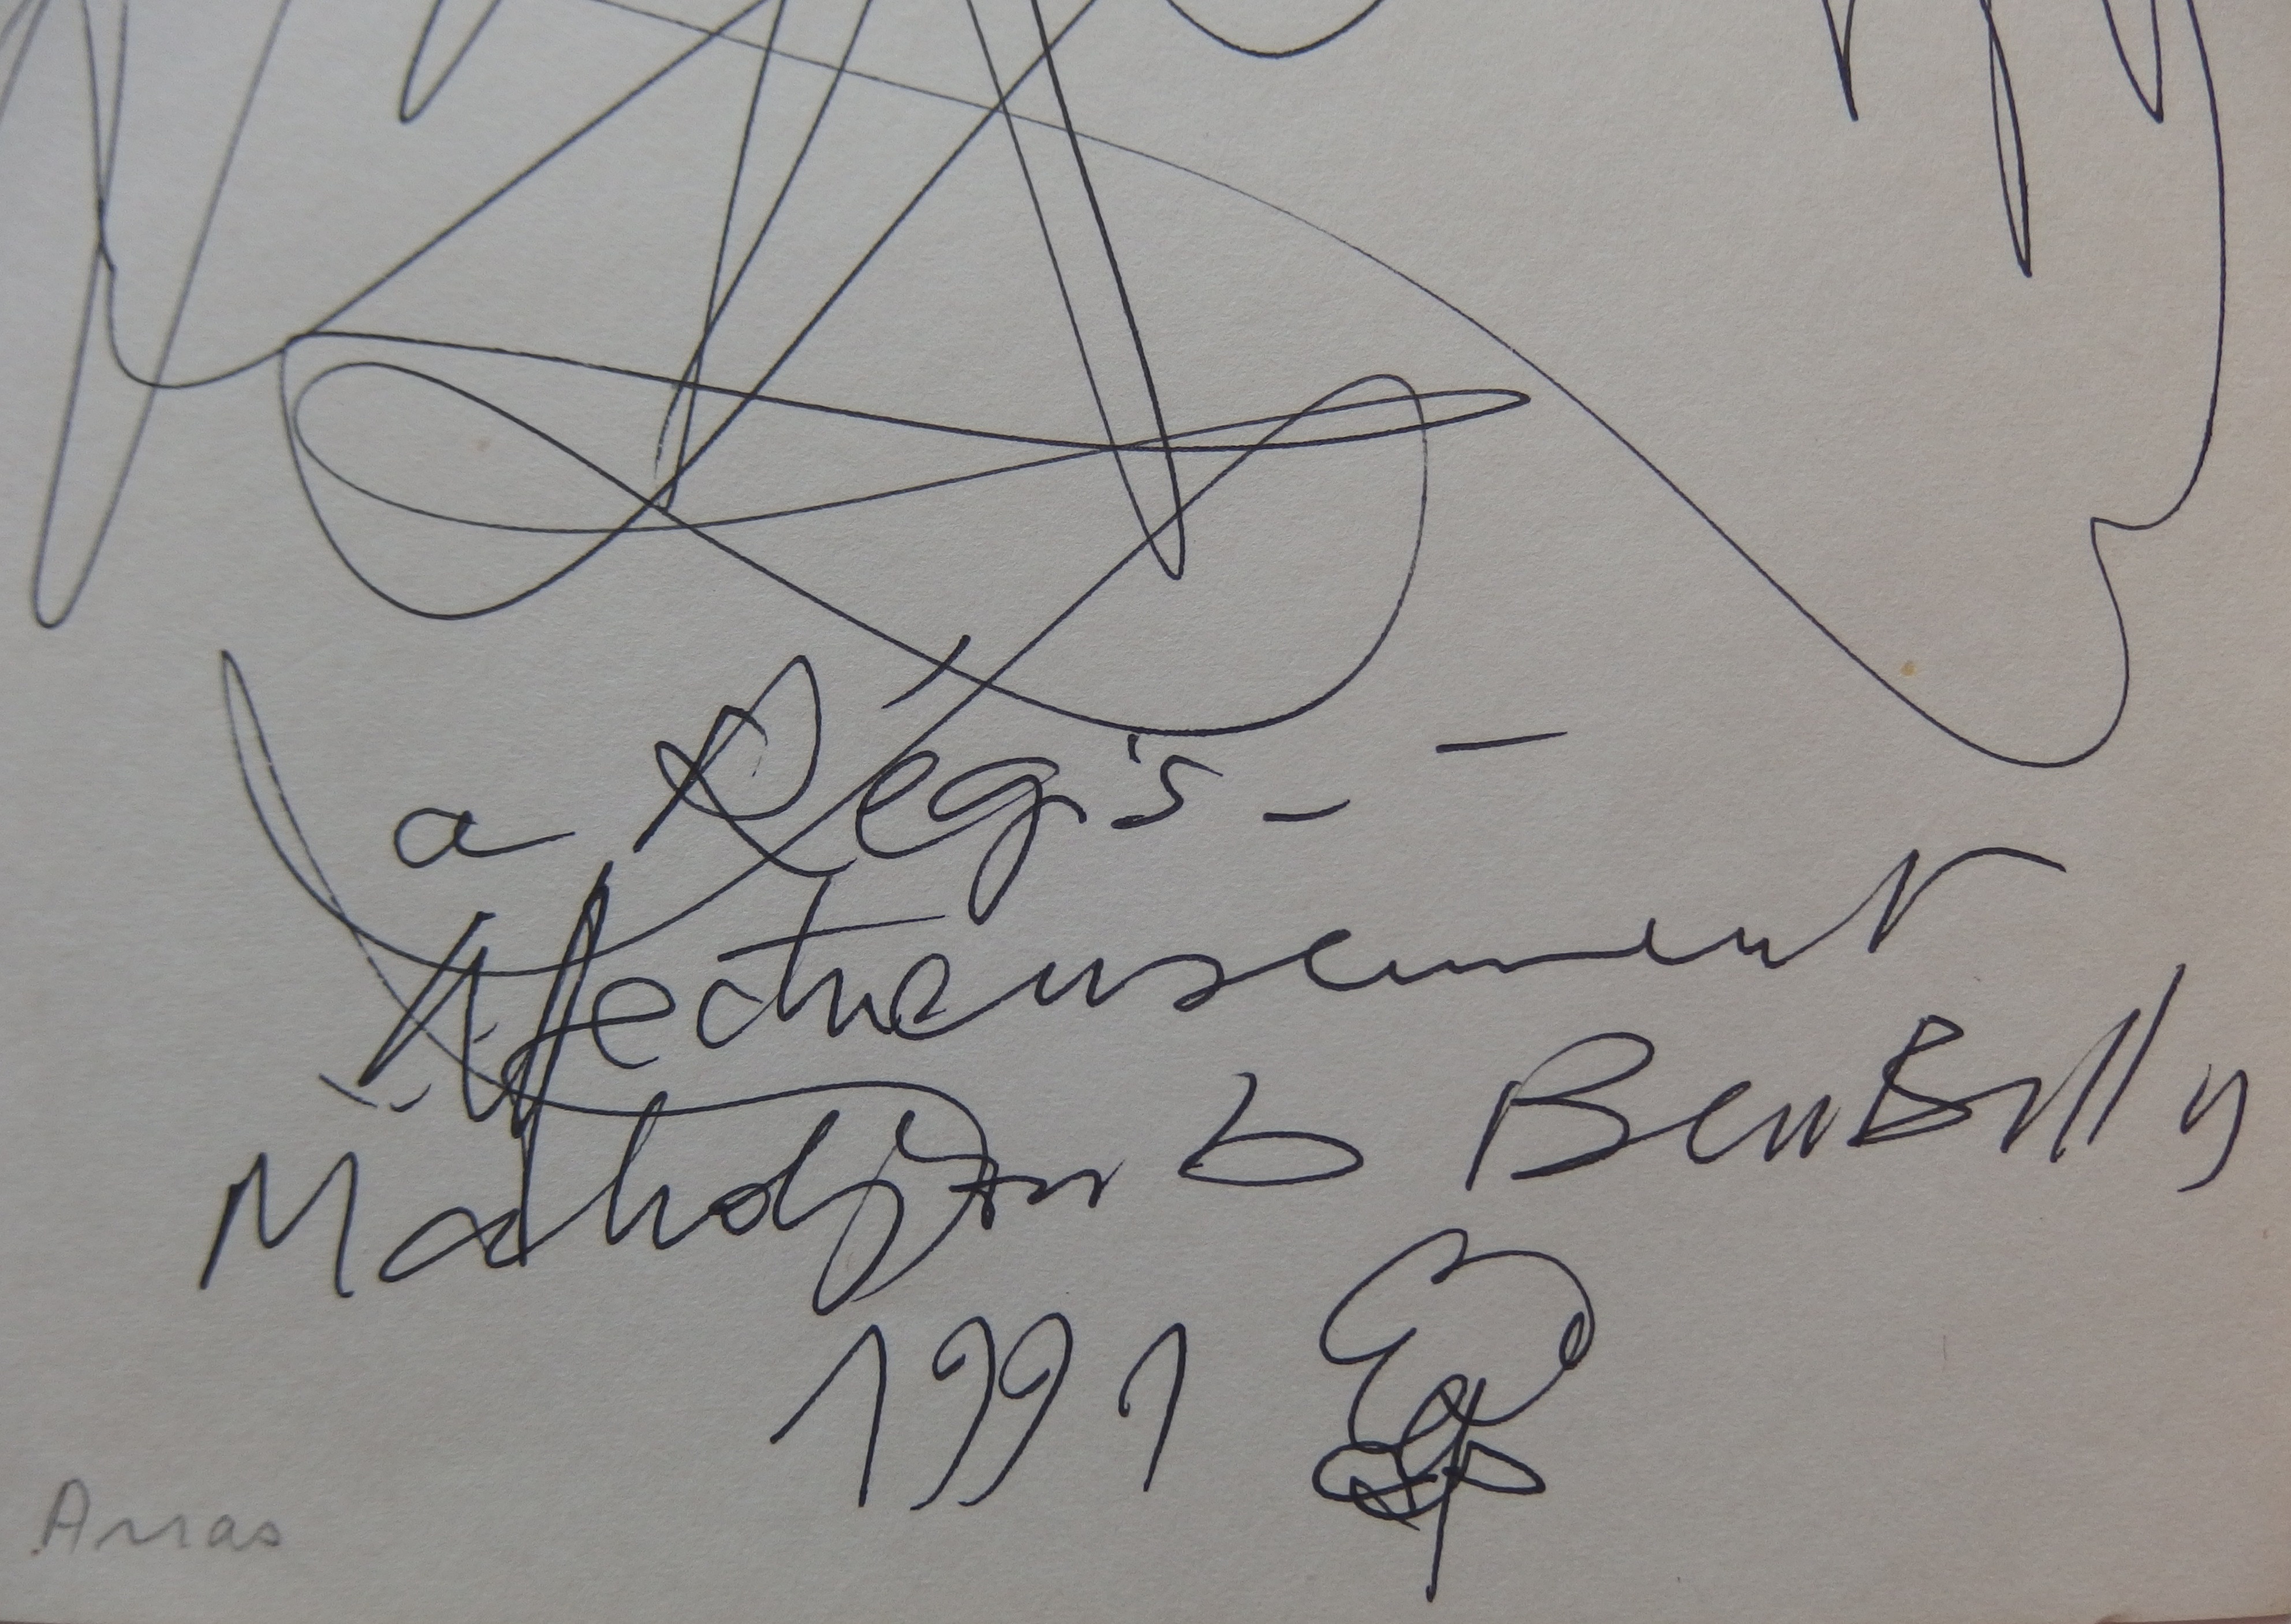 a Régis - -
Affectueusement
Mahdjoub BenBelly
1991
Arras